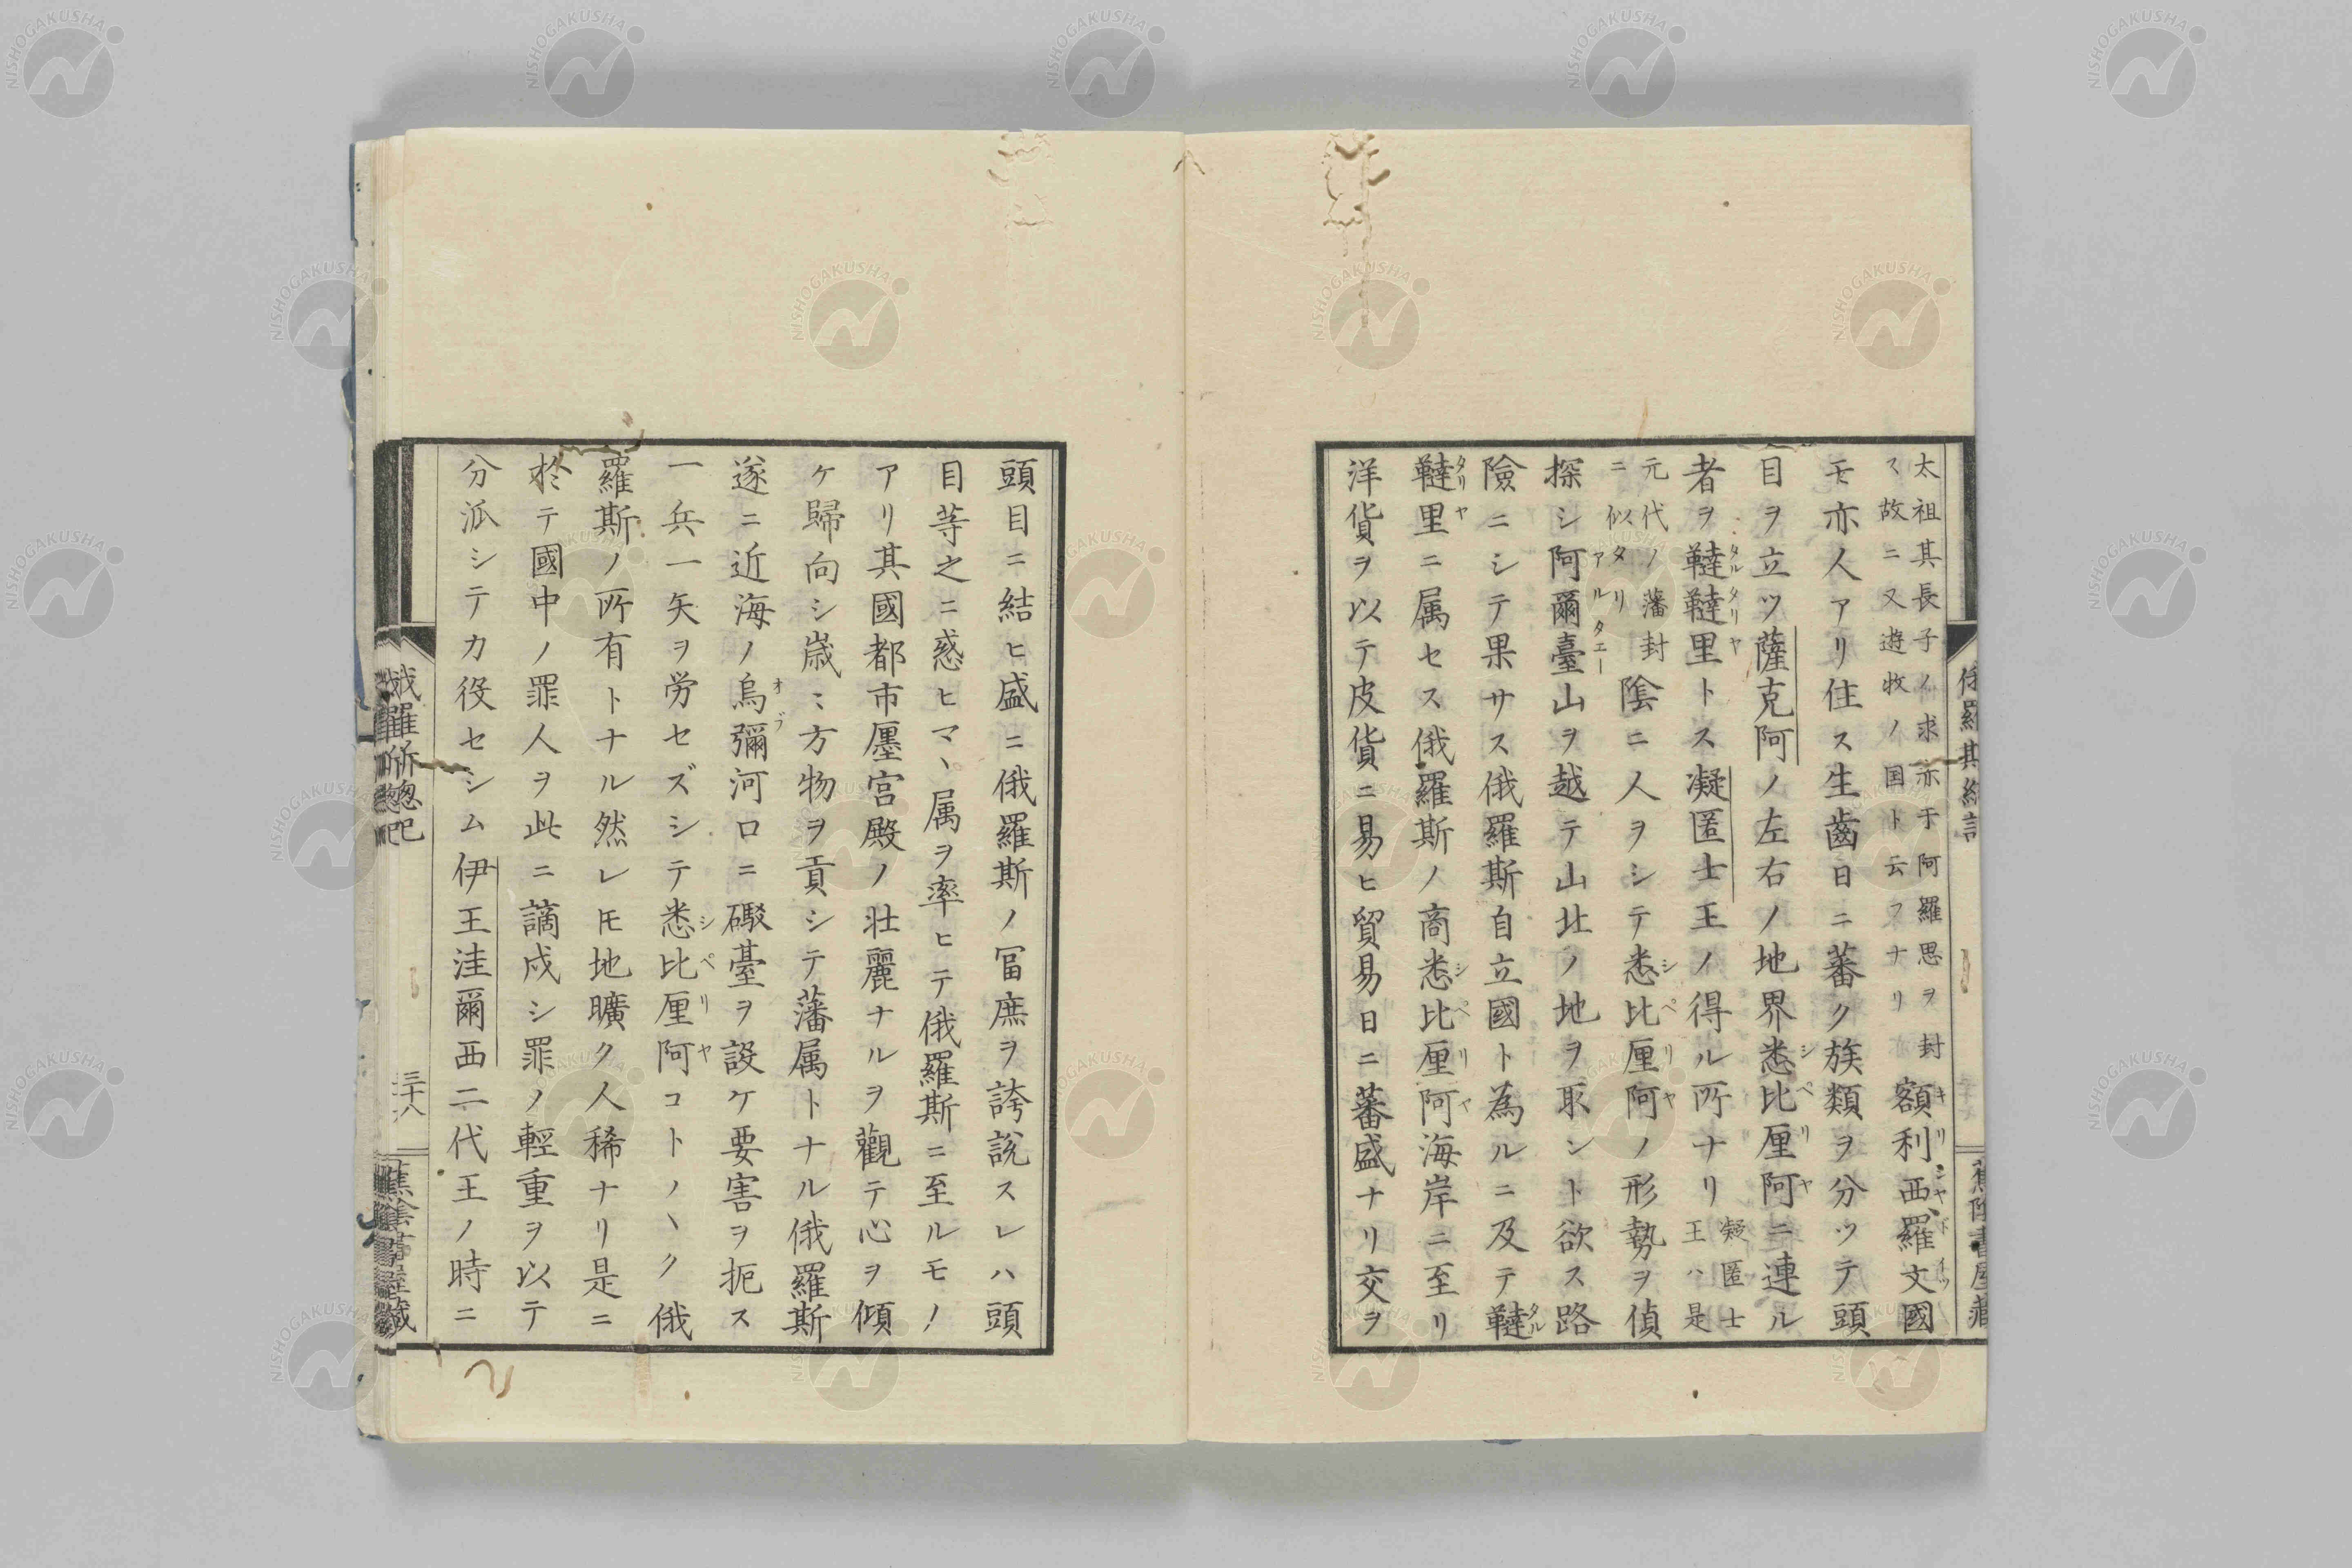 太祖其長子ノ求亦于阿羅思ヲ封
マ故ニ又遊牧ノ国ト云フナリ
額利西羅文國
モ亦人アリ住ス生齒日ニ蕃ク族類ヲ分ツテ頭
目ヲ立ツ薩克阿ノ左右ノ地界悉比厘阿ニ連ル
者ヲ韃韃里トス凝匿士王ノ得ル所ナリ
凝匿士
王ハ是
元代ノ藩封
ニ似タリ
陰ニ人ヲシテ悉比厘阿ノ形勢ヲ偵
探シ阿爾臺山ヲ越テ山北ノ地ヲ取ント欲ス路
險ニシテ果サス俄羅斯自立國ト為ルニ及テ韃
韃里ニ属セス俄羅斯ノ商悉比厘阿海岸ニ至リ
洋貨ヲ以テ皮貨ニ易ヒ貿易日ニ蕃盛ナリ交ヲ
頭目ニ結ヒ盛ニ俄羅斯ノ冨庶ヲ誇説スレハ頭
目等之ニ惑ヒマヽ属ヲ率ヒテ俄羅斯ニ至ルモノ
アリ其國都市廛宮殿ノ壮麗ナルヲ觀テ心ヲ傾
ケ歸向シ歳〻方物ヲ貢シテ藩属トナル俄羅斯
遂ニ近海ノ烏彌河口ニ礮臺ヲ設ケ要害ヲ扼ス
一兵一矢ヲ労セズシテ悉比厘阿コト〱ク俄
羅斯ノ所有トナル然レ𪜈地曠ク人稀ナリ是ニ
於テ國中ノ罪人ヲ此ニ謫戍シ罪ノ輕重ヲ以テ
分派シテカ役セシム伊王洼爾西二代王ノ時ニ
峨羅斯總記
三十八
蕉陰書屋藏